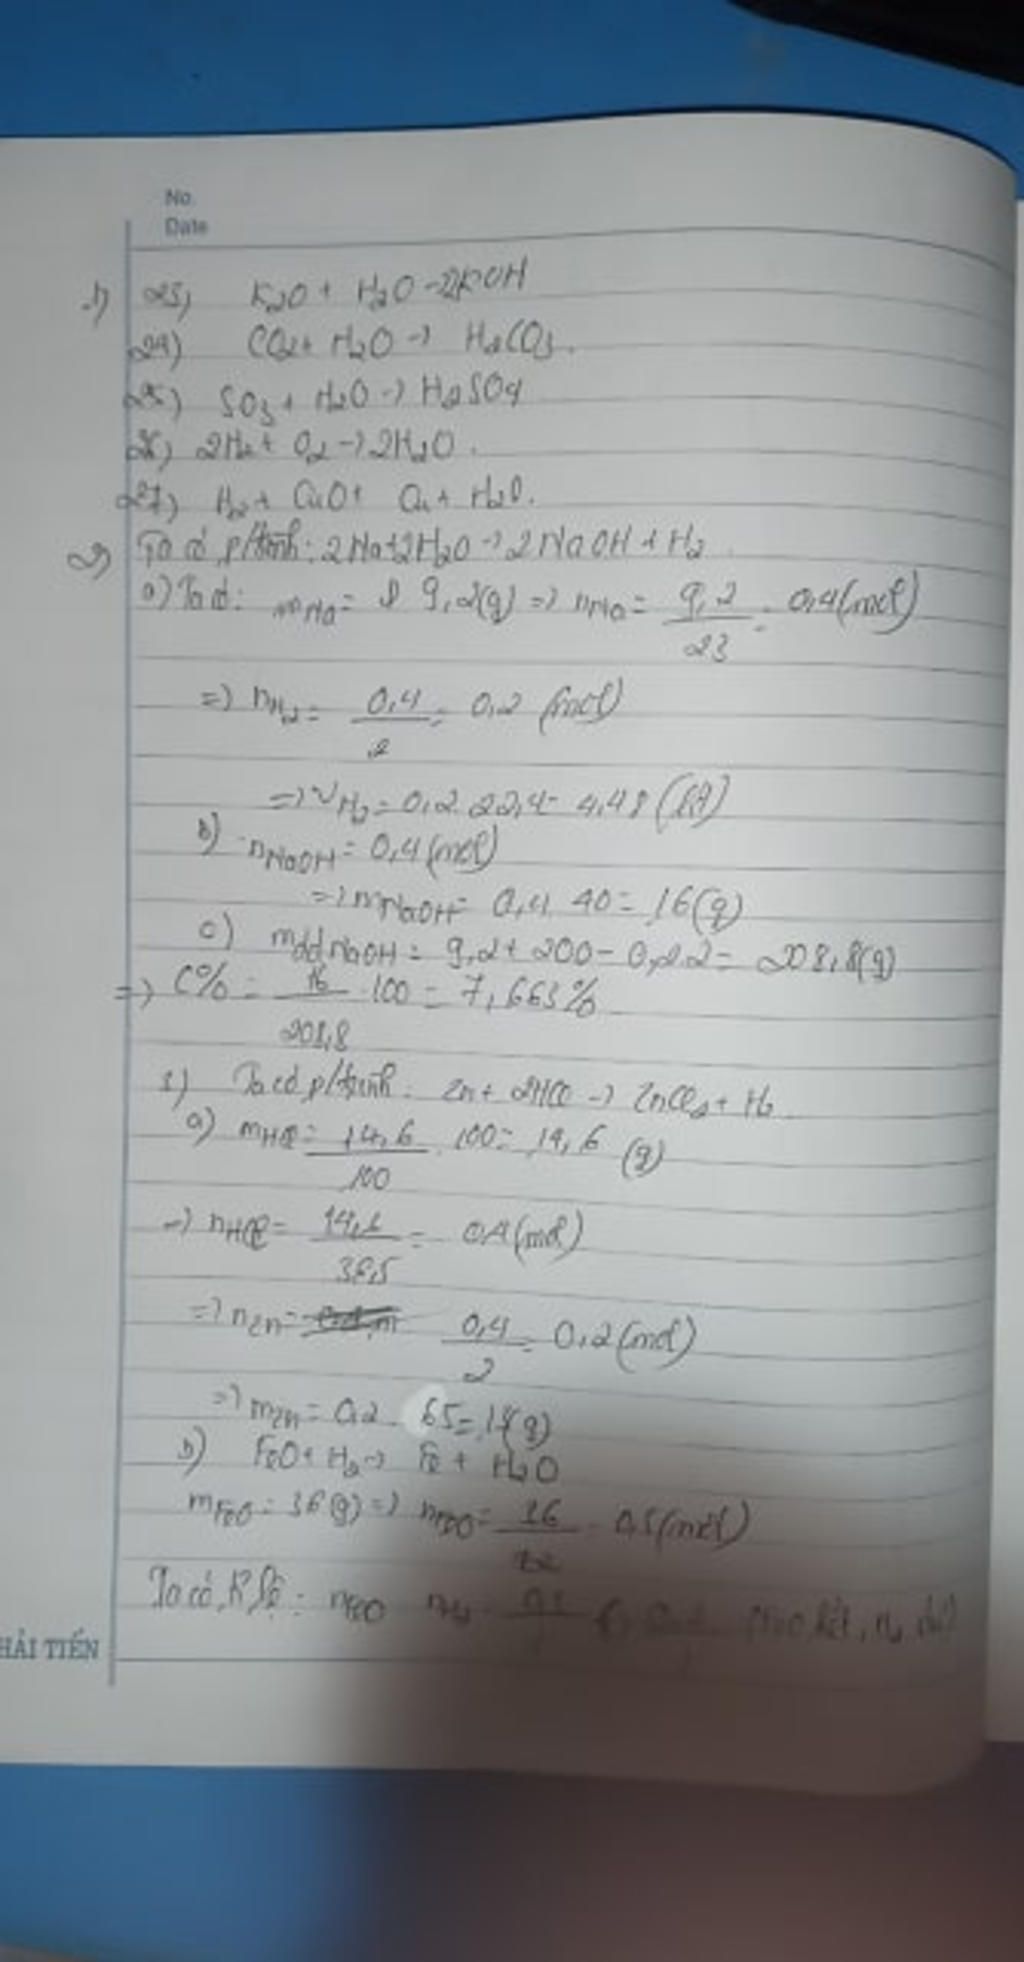 No.
Date
1) 23) K2O + H2O → 2KOH
24) CO2 + H2O → H2CO3.
25) SO3 + H2O → H2SO4
26) 2H2 + O2 → 2H2O.
27) H2 + CuO + Cu + H2O.
2) Ta có p/trình: 2Na + 2H2O → 2NaOH + H2.
a) Ta có: mNa = 9,2(g) => nNa = 9,2/23 = 0,4(mol)
=> nH2 = 0,4/2 = 0,2 (mol)
=> VH2 = 0,2.22,4 = 4,48 (lít)
b) nNaOH = 0,4(mol)
=> mNaOH = 0,4.40 = 16(g)
c) mddNaOH = 9,2 + 200 - 0,2.2 = 208,8(g)
=> C% = 16/208,8 . 100 = 7,663%
Ta có p/trình: Zn + 2HCl → ZnCl2 + H2
a) mHCl = 14,6/100 . 100 = 14,6 (g)
=> nHCl = 14,6/36,5 = 0,4(mol)
=> nZn = 0,4/2 = 0,2(mol)
=> mZn = 0,2.65 = 13(g)
b) FeO + H2 → Fe + H2O
mFeO = 36(g) => nFeO = 36/72 = 0,5(mol)
Ta có, tỉ lệ: nFeO nH2
HẢI TIẾN